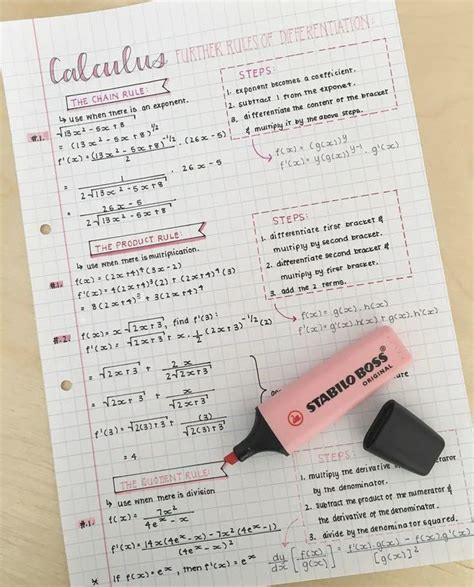 Calculus FURTHER RULES OF DIFFERENTIATION:
THE CHAIN RULE:
↳ use when there is an exponent.
#.1. √13x² - 5x + 8
f(x) = (13x² - 5x + 8)^1/2
f'(x) = (13x² - 5x + 8)^1/2 . (26x - 5)
= 1 / 2√13x² - 5x + 8 . 26x - 5
= 26x - 5 / 2√13x² - 5x + 8
STEPS:
1. exponent becomes a coefficient.
2. subtract 1 from the exponent.
3. differentiate the content of the bracket
& multiply it by the above steps.
f(x) = (g(x))^y
f'(x) = y(g(x))^y-1 . g'(x)
THE PRODUCT RULE:
↳ use when there is multiplication.
#.1. f(x) = (2x+4)⁴(3x-2)
f'(x) = 4(2x+4)³(2) + (2x+4)⁴(3)
= 8(2x+4)³ + 3(2x+4)⁴
STEPS:
1. differentiate first bracket &
multiply by second bracket.
2. differentiate second bracket &
multiply by first bracket.
3. add the 2 terms.
f(x) = g(x).h(x)
f'(x) = g'(x).h(x) + g(x).h'(x)
#.2. f(x) = x√2x+3, find f'(3):
f'(x) = √2x+3 + x. 1/2 (2x+3)^-1/2(2)
= √2x+3 + 2x / 2√2x+3
= √2x+3 + x / √2x+3
f'(3) = √2(3)+3 + (3) / √2(3)+3
= 4
STABILO BOSS
ORIGINAL
THE QUOTIENT RULE:
↳ use when there is division
#.1. f(x) = 7x² / 4eˣ - x
f'(x) = 14x(4eˣ - x) - 7x²(4eˣ - 1) / (4eˣ - x)²
* If f(x) = eˣ, then f'(x) = eˣ
STEPS
1. multiply the derivative
by the denominator.
2. subtract the product of the numerator &
the derivative of the denominator.
3. divide by the denominator squared.
dy/dx [f(x)/g(x)] = f'(x).g(x) - f(x).g'(x) / [g(x)]²